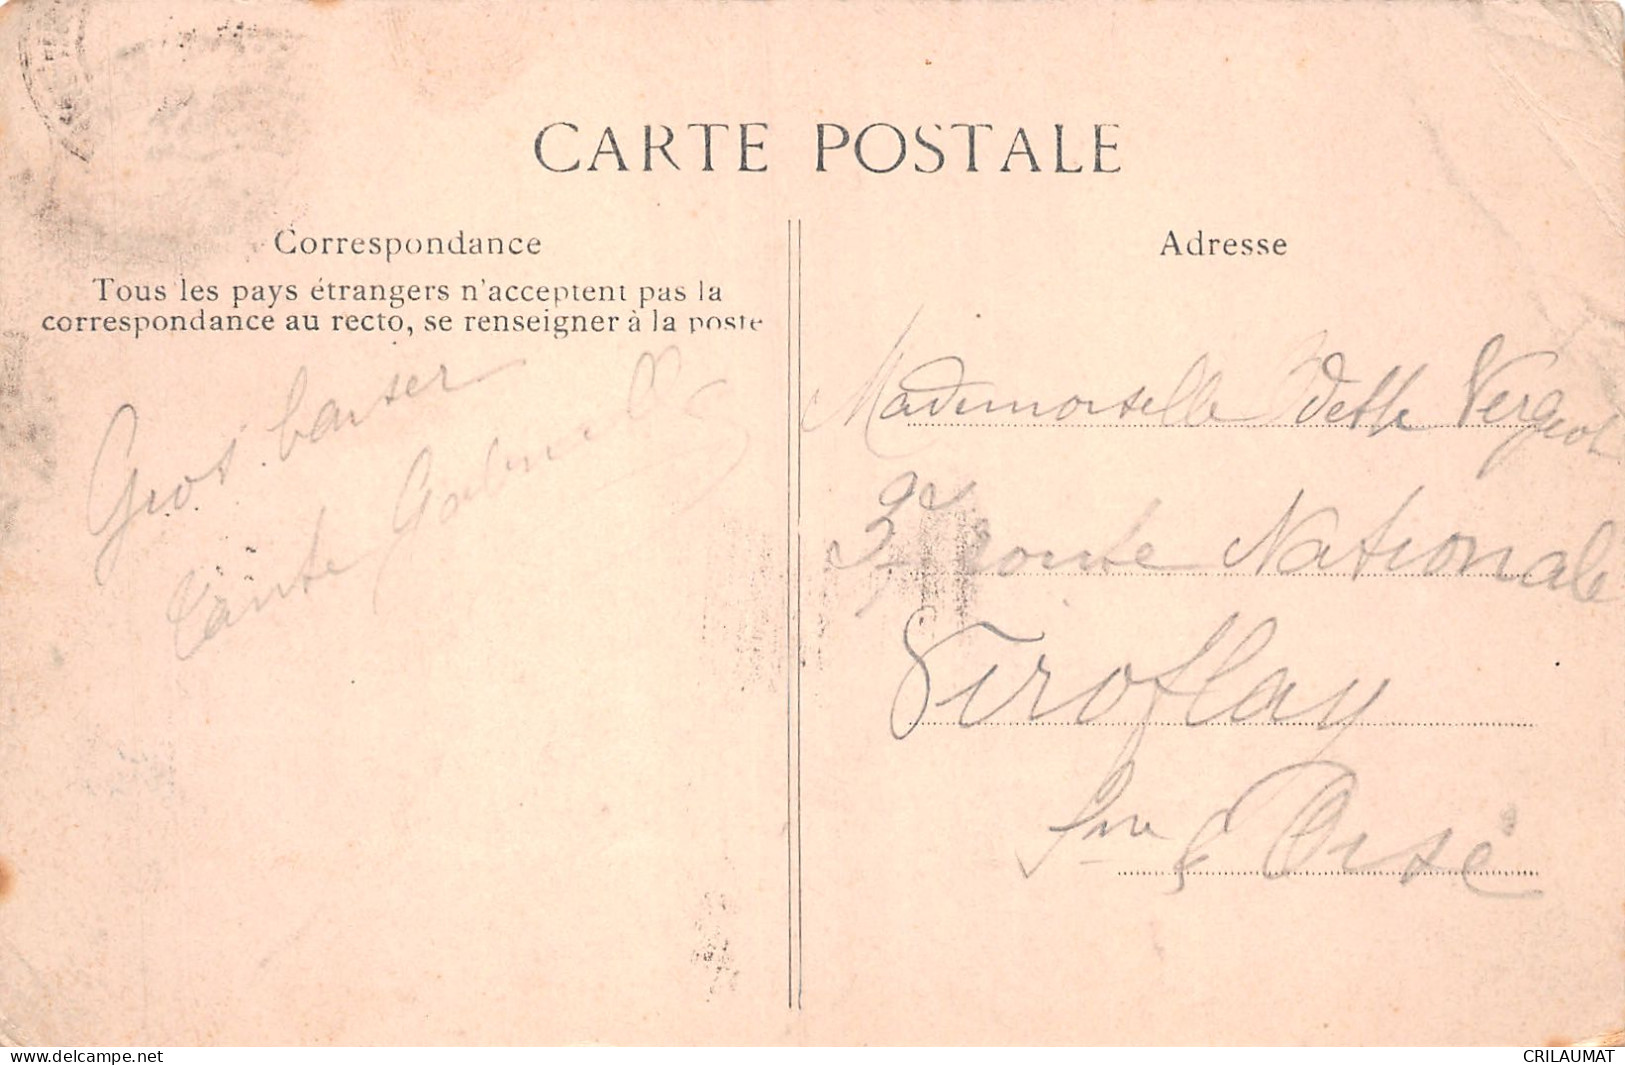 CARTE POSTALE
Correspondance
Tous les pays étrangers n'acceptent pas la
correspondance au recto, se renseigner à la poste
Gros baiser
Tante Gabrielle
Adresse
Mademoiselle Odette Vergeot
route Nationale
Viroflay
Sne & Oise
www.delcampe.net
CRILAUMAT